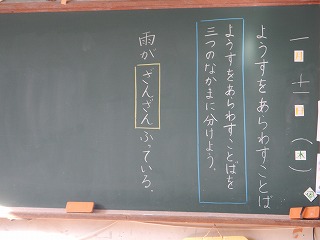 一月十一日(木)
ようすをあらわすことば
ようすをあらわすことばを
三つのなかまに分けよう。
雨がざんざんふっている。